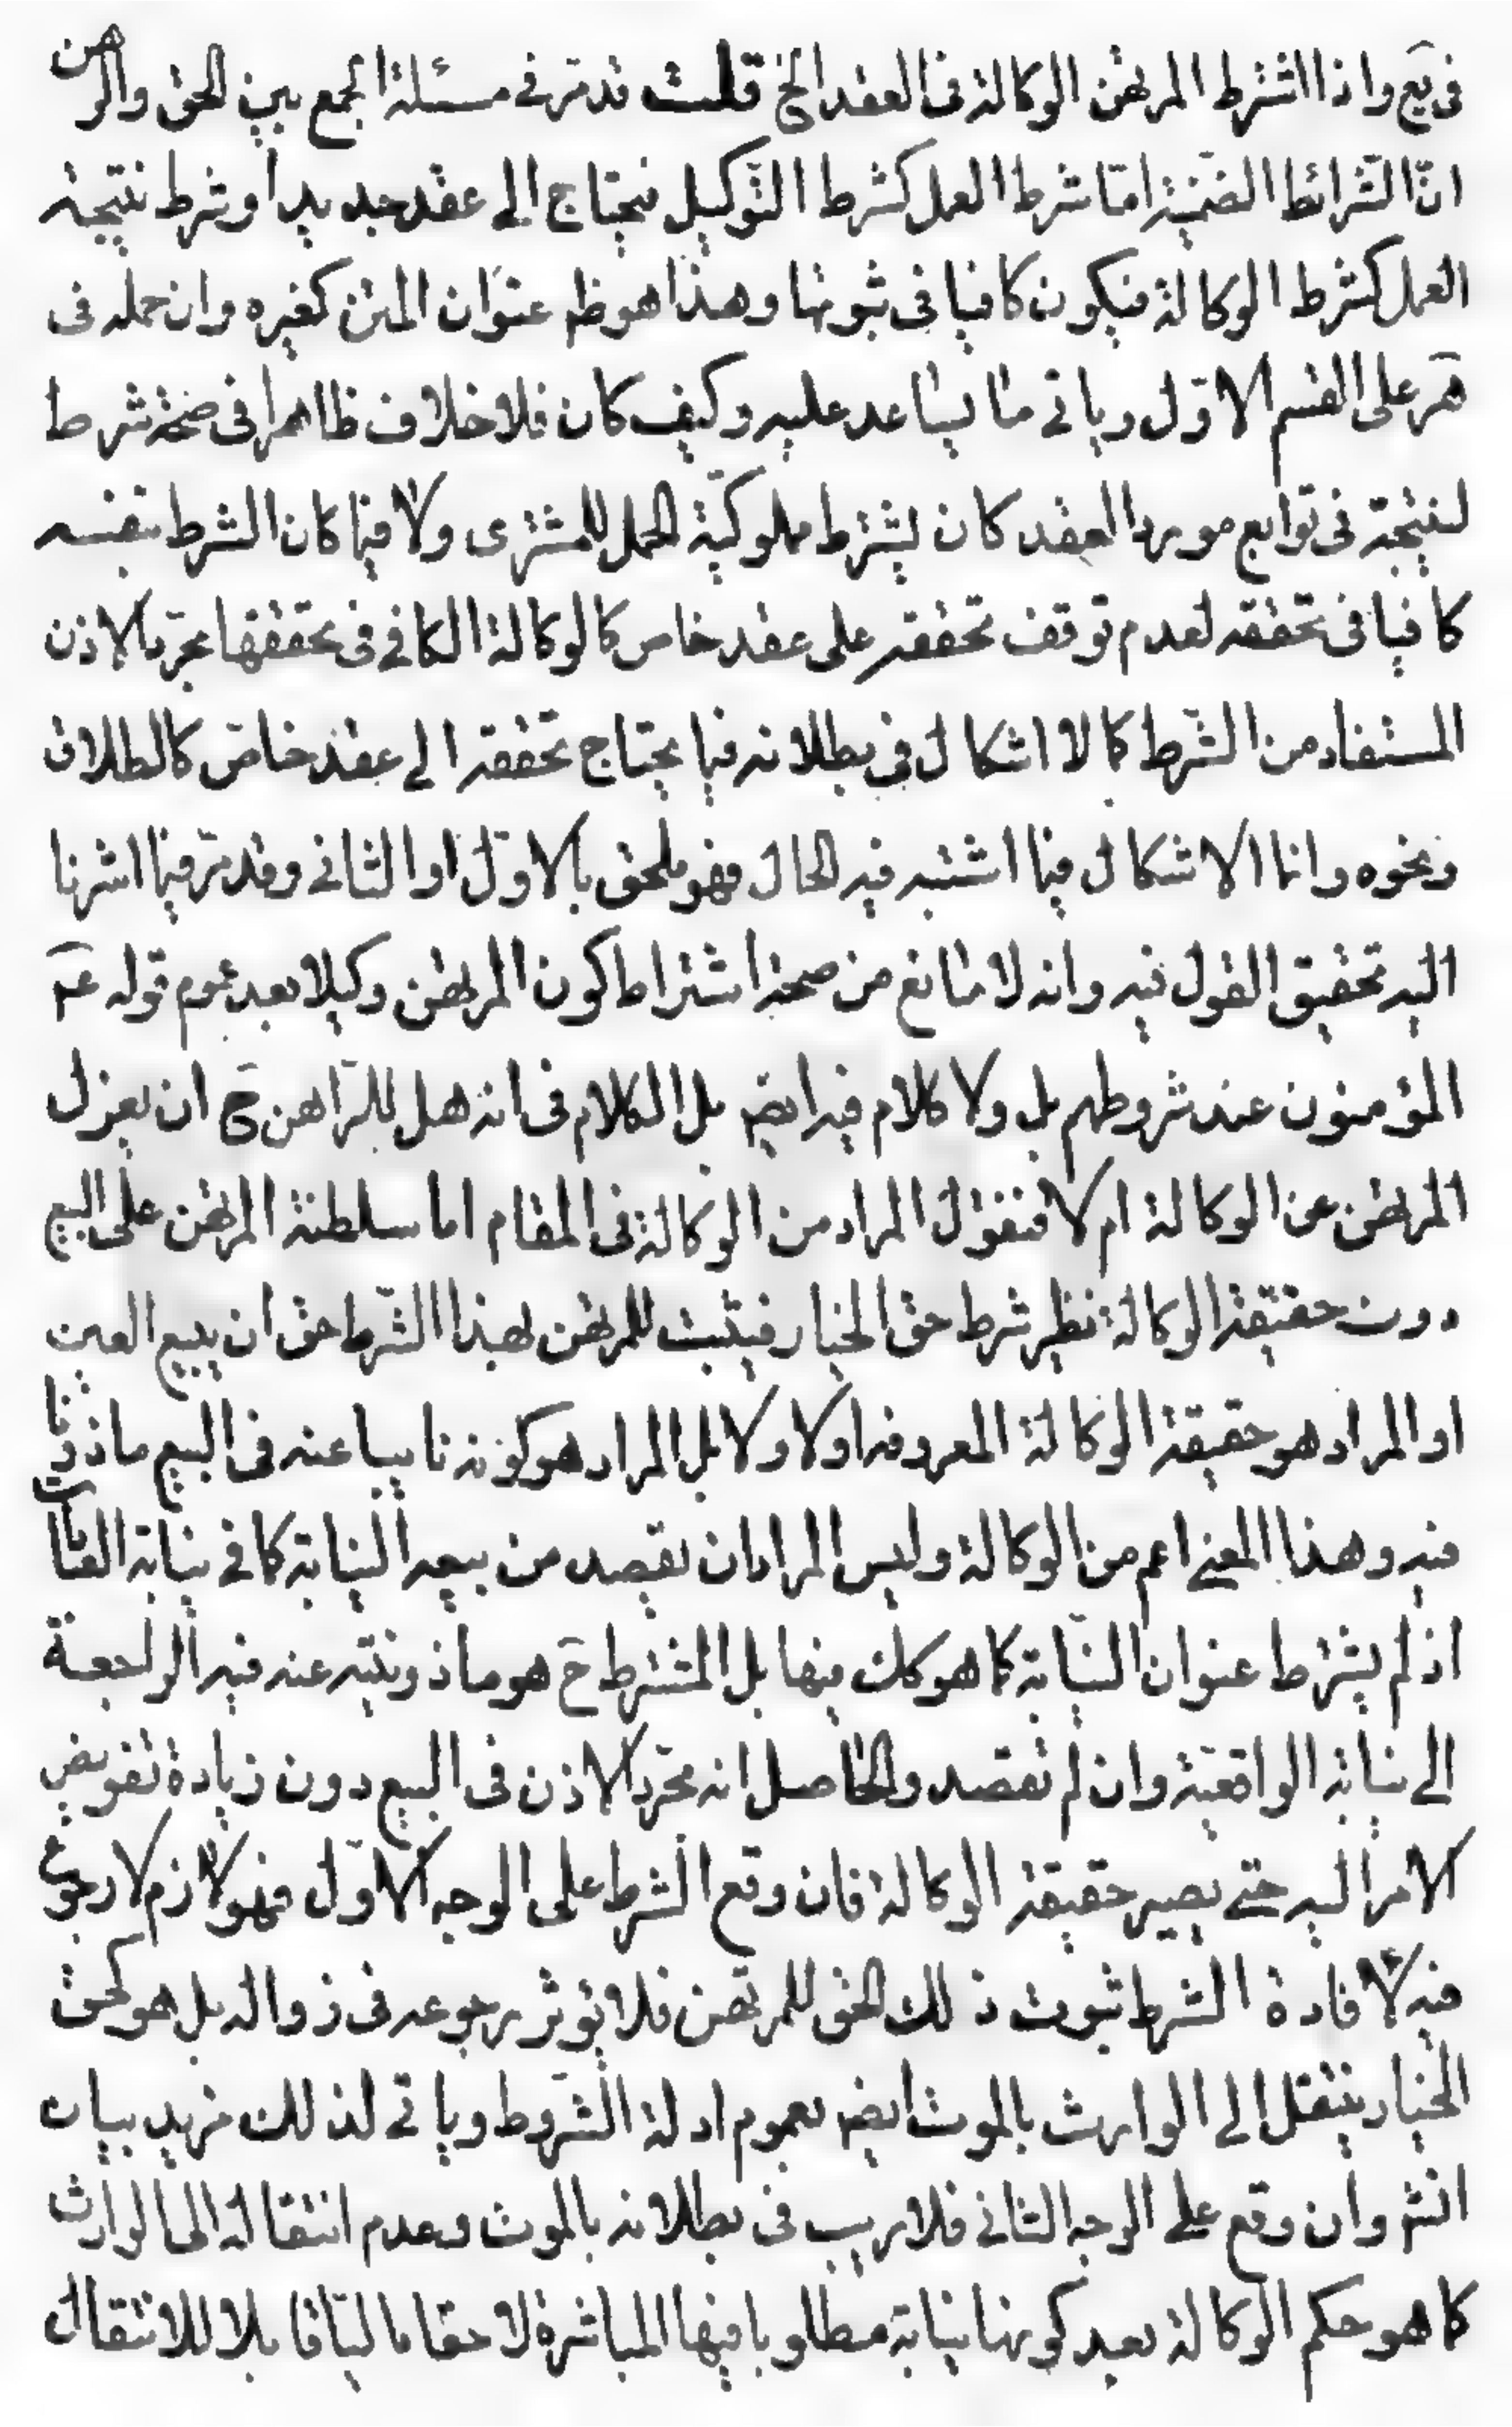 فى يع واذا اشترط المرتهن الوكالة فى العقد الخ قلت قد مرّ فے مسئلة الجمع بين الحق والرهن
انّ الشّرائط الضّمنيّة امّا شرط العمل كشرط التّوكيل فيحتاج الى عقد جديد او شرط نتيجة
العمل كشرط الوكالة فيكون كافيا فى ثبوتها وهذا هو ظ عنوان المتن كغيره وان حمله فى
هر على القسم الاوّل وياتے ما يساعد عليه وكيف كان فلا خلاف ظاهرا فى صحّة شرط
لنتيجة فى توابع مورد العقد كان يشترط مملوكيّة الحمل للمشترى ولا فيما كان الشرط بنفسه
كافيا فى تحققه لعدم توقف تحققه على عقد خاص كالوكالة الكافے فى تحققها مجرّد الاذن
المستفاد من الشّرط كما لا اشكال فى بطلانه فيما يحتاج تحققه الے عقد خاصّ كالطلاق
ونحوه وانما الاشكال فيما اشتبه فيه الحال فهو ملحق بالاوّل او الثانے وقد مرّ فيما اشرنا
اليه تحقيق القول فيه وانه لا مانع من صحة اشتراط كون المرتهن وكيلا بعد عموم قوله عم
المؤمنون عند شروطهم بل ولا كلام فيه ايضم بل الكلام فى انه هل للرّاهن ح ان يعزل
المرتهن عن الوكالة ام لا فنقول المراد من الوكالة فى المقام اما سلطنة المرتهن على البيع
دون حقيقة الوكالة نظير شرط حق الخيار فيثبت للمرتهن بهذا الشّرط حق ان يبيع العين
او المراد هو حقيقة الوكالة المعروفة اولا ولا بل المراد هو كونه نايبا عنه فى البيع ماذونا
فيه وهذا المعنے اعم من الوكالة وليس المراد ان يقصد من بيعه النيابة كما فے نيابة العبادات
اذ لم يشترط عنوان النيابة كما هو كك فيها بل المشترط ح هو ماذونيّته عنه فيه الراجعة
الے نيابة الواقعيّة وان لم تقصد والحاصل انه مجّرد الاذن فى البيع دون زيادة تفويض
الامر اليه حتے يصير حقيقة الوكالة فان وقع الشرط على الوجه الاوّل فهو لازم لا رجوع
فيه لافادة الشرط ثبوت ذلك الحق للمرتهن فلا يؤثر رجوعه فى زواله بل هو كحق
الخيار ينتقل الى الوارث بالموت ايضم بعموم ادلة الشّروط وياتے لذلك مزيد بيان
انشم وان وقع علے الوجه الثانے فلا ريب فى بطلانه بالموت وعدم انتقاله الى الوارث
كما هو حكم الوكالة بعد كونها نيابة مطلوبا فيها المباشرة لا حقا ماليّا قابلا للانتقال